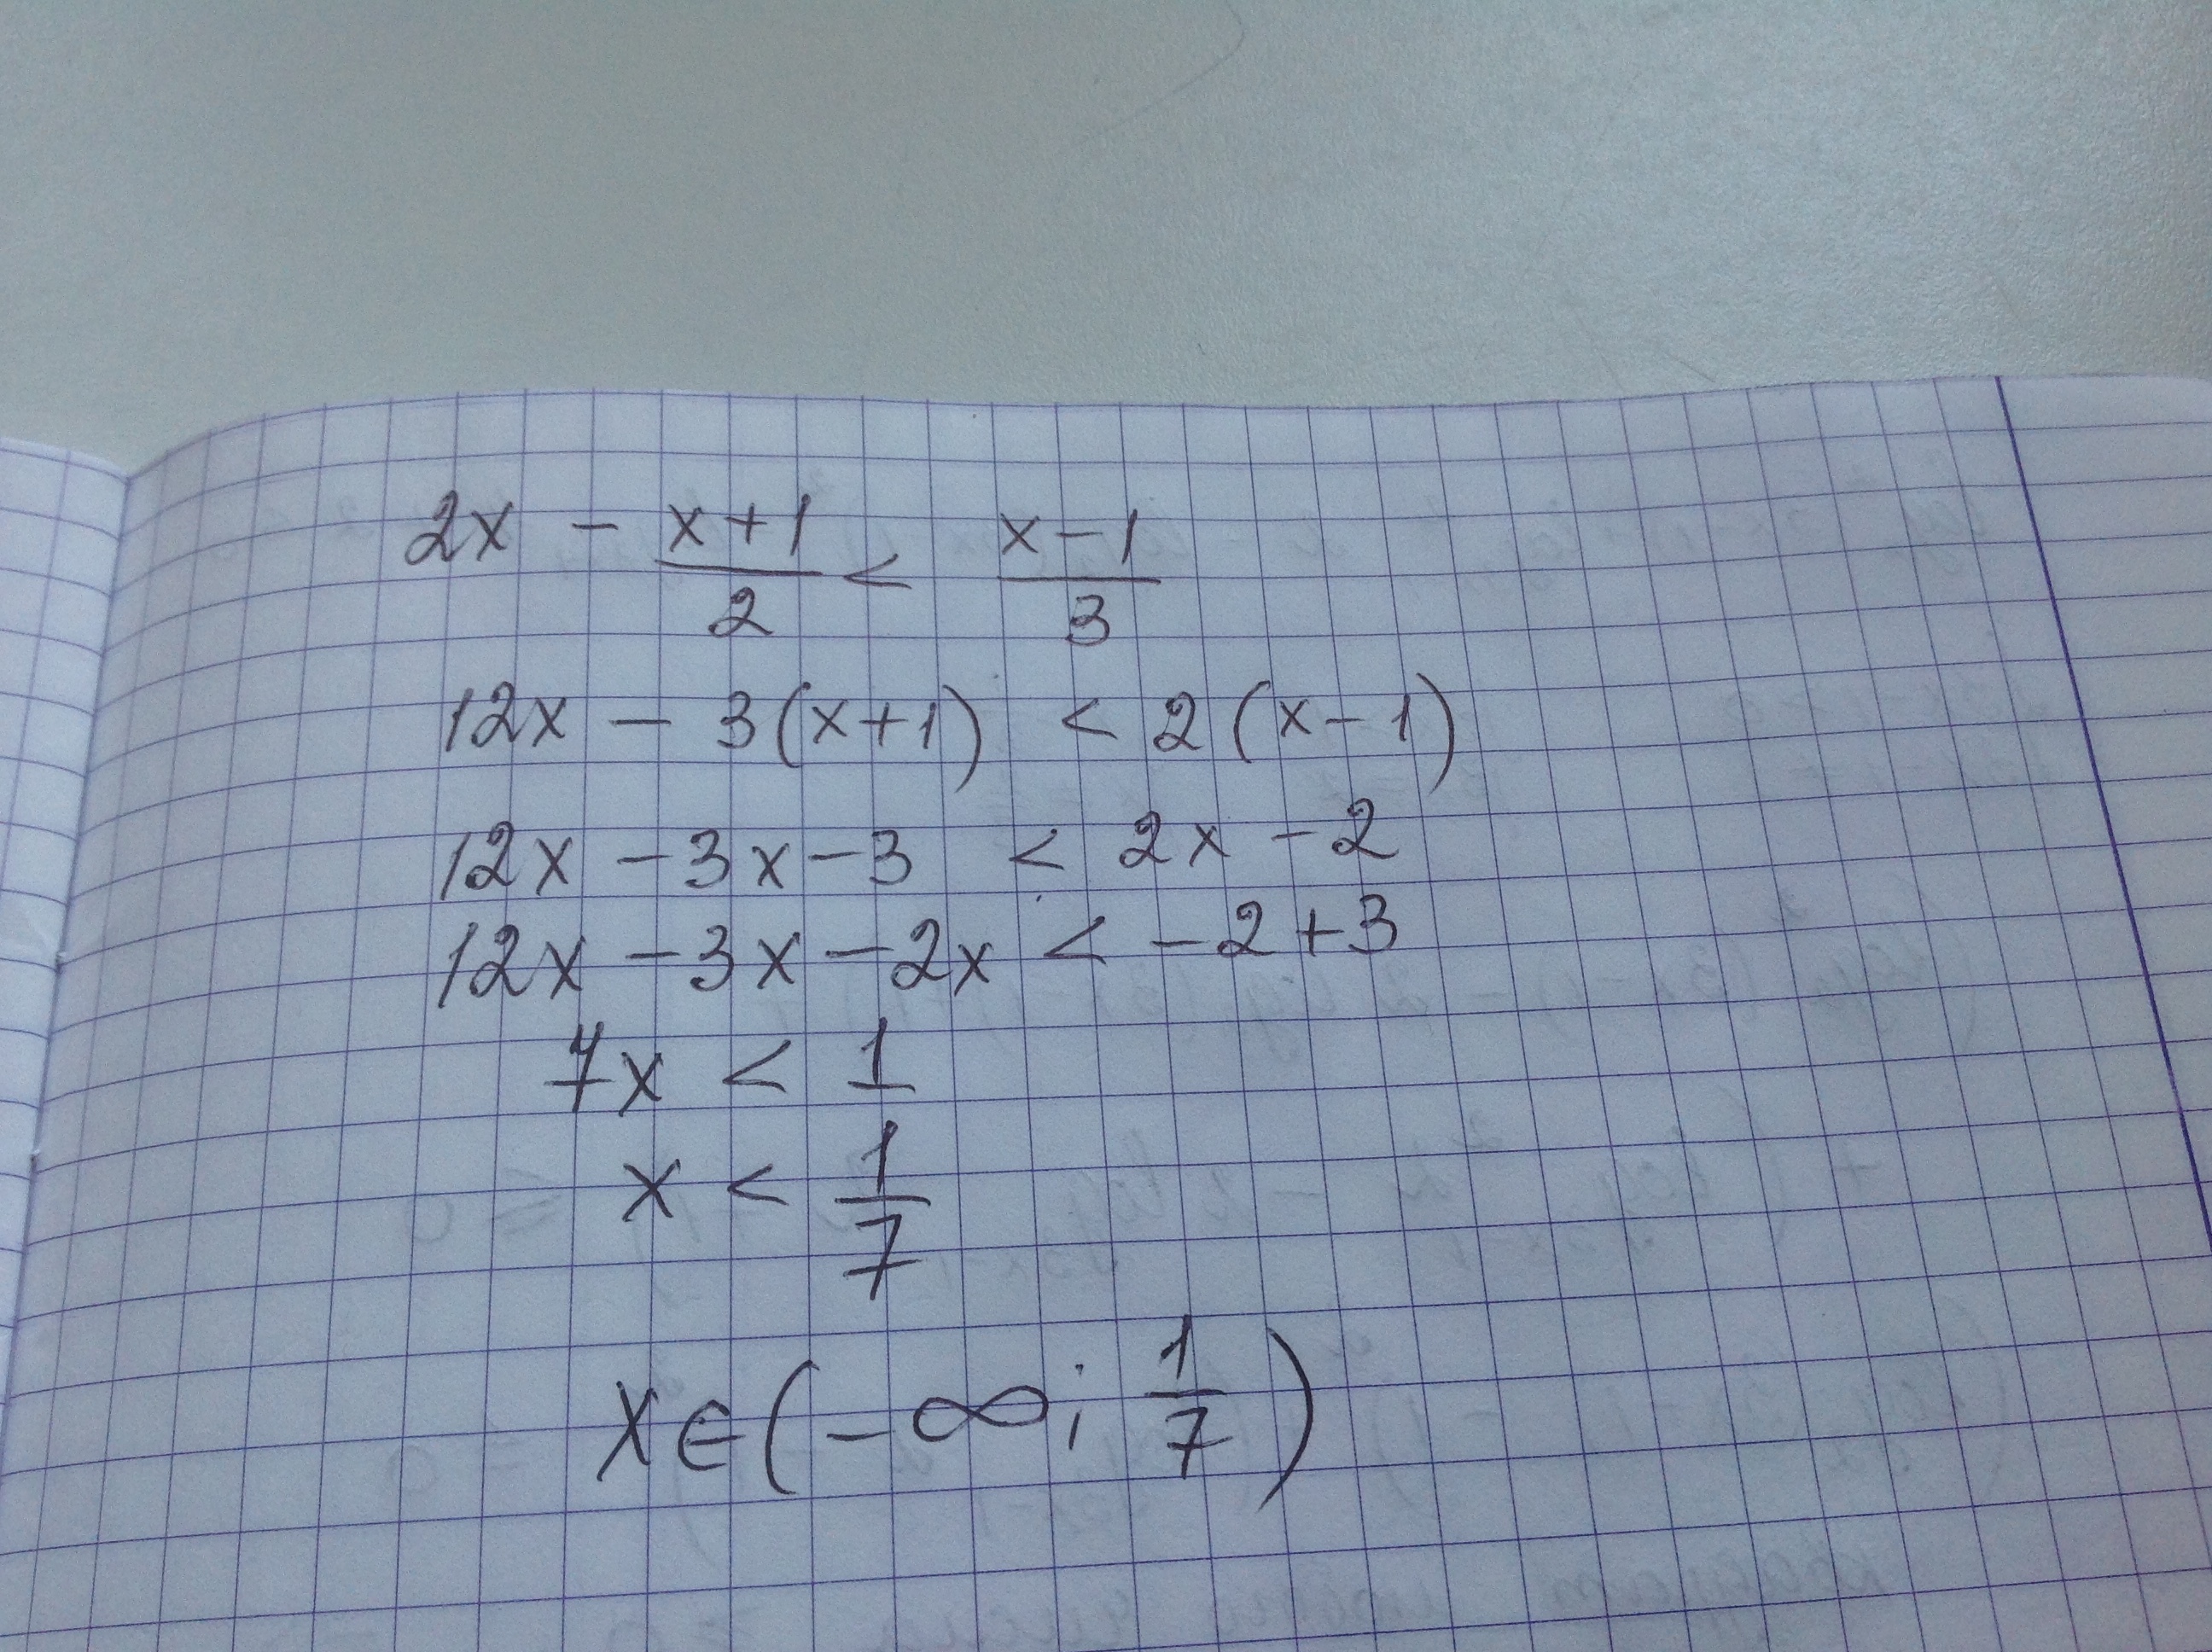 2x - (x+1)/2 < (x-1)/3
12x - 3(x+1) < 2(x-1)
12x - 3x - 3 < 2x - 2
12x - 3x - 2x < -2+3
7x < 1
x < 1/7
x∈(-∞; 1/7)